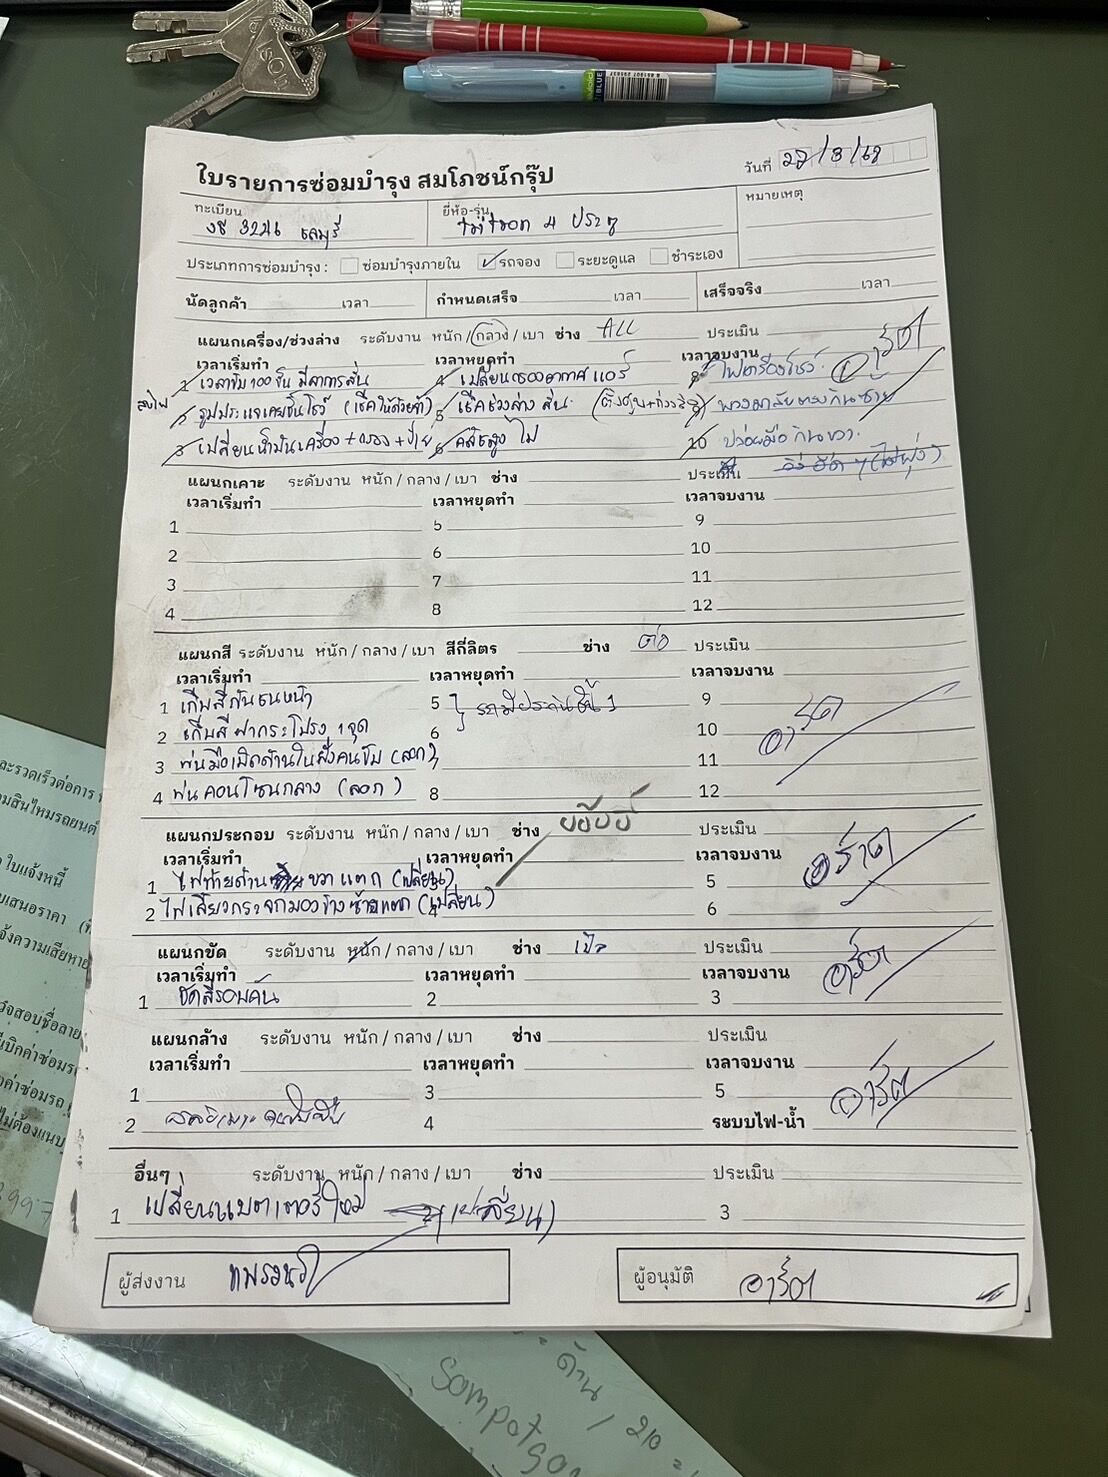 วันที่ 22/3/68
ใบรายการซ่อมบำรุง สมโภชน์กรุ๊ป
ทะเบียน ยี่ห้อ-รุ่น หมายเหตุ
ชลบุรี 4 ประตู
ประเภทการซ่อมบำรุง : ซ่อมบำรุงภายใน รถจอง ระยะดูแล ชำระเอง
นัดลูกค้า เวลา กำหนดเสร็จ เวลา เสร็จจริง เวลา
แผนกเครื่อง/ช่วงล่าง ระดับงาน หนัก / กลาง / เบา ช่าง ALL ประเมิน
เวลาเริ่มทำ เวลาหยุดทำ เวลาจบงาน
เวลาขับ 100 ขึ้น มีอาการสั่น 4 เปลี่ยนกรองอากาศแอร์ ไฟเครื่องโชว์ อาร์ต
(เช็คให้ด้วยค่ะ) 5 เช็คช่วงล่าง สั่น พวงมาลัยตรงกินซ้าย
3 เปลี่ยนน้ำมันเครื่อง + กรอง 6 10 ปล่อยมือกินขวา
แผนกเคาะ ระดับงาน หนัก / กลาง / เบา ช่าง ประเมิน
เวลาเริ่มทำ เวลาหยุดทำ เวลาจบงาน
1 5 9
2 6 10
3 7 11
4 8 12
แผนกสี ระดับงาน หนัก / กลาง / เบา สีกี่ลิตร ช่าง ต่อ ประเมิน
เวลาเริ่มทำ เวลาหยุดทำ เวลาจบงาน
1 เก็บสีกันชนหน้า 5 รถมีประกันชั้น 1 9
2 เก็บสีฝากระโปรง 1 จุด 6 10 อาร์ต
3 พ่นมือเปิดด้านในฝั่งคนขับ (ลอก) 11
4 พ่นคอนโซนกลาง (ลอก) 8 12
แผนกประกอบ ระดับงาน หนัก / กลาง / เบา ช่าง ประเมิน
เวลาเริ่มทำ เวลาหยุดทำ เวลาจบงาน
1 ไฟท้ายด้าน ขวา แตก (เปลี่ยน) 5 อาร์ต
2 ไฟเลี้ยวกระจกมองข้างซ้ายแตก (เปลี่ยน) 6
แผนกขัด ระดับงาน หนัก / กลาง / เบา ช่าง ประเมิน
เวลาเริ่มทำ เวลาหยุดทำ เวลาจบงาน อาร์ต
1 ขัดสีรอบคัน 2 3
แผนกล้าง ระดับงาน หนัก / กลาง / เบา ช่าง ประเมิน
เวลาเริ่มทำ เวลาหยุดทำ เวลาจบงาน
1 3 5 อาร์ต
2 4 ระบบไฟ-น้ำ
อื่นๆ ระดับงาน หนัก / กลาง / เบา ช่าง ประเมิน
1 เปลี่ยนแบตเตอรี่ใหม่ (เปลี่ยน) 3
ผู้ส่งงาน ผู้อนุมัติ อาร์ต
ใบแจ้งหนี้
สินไหมรถยนต์